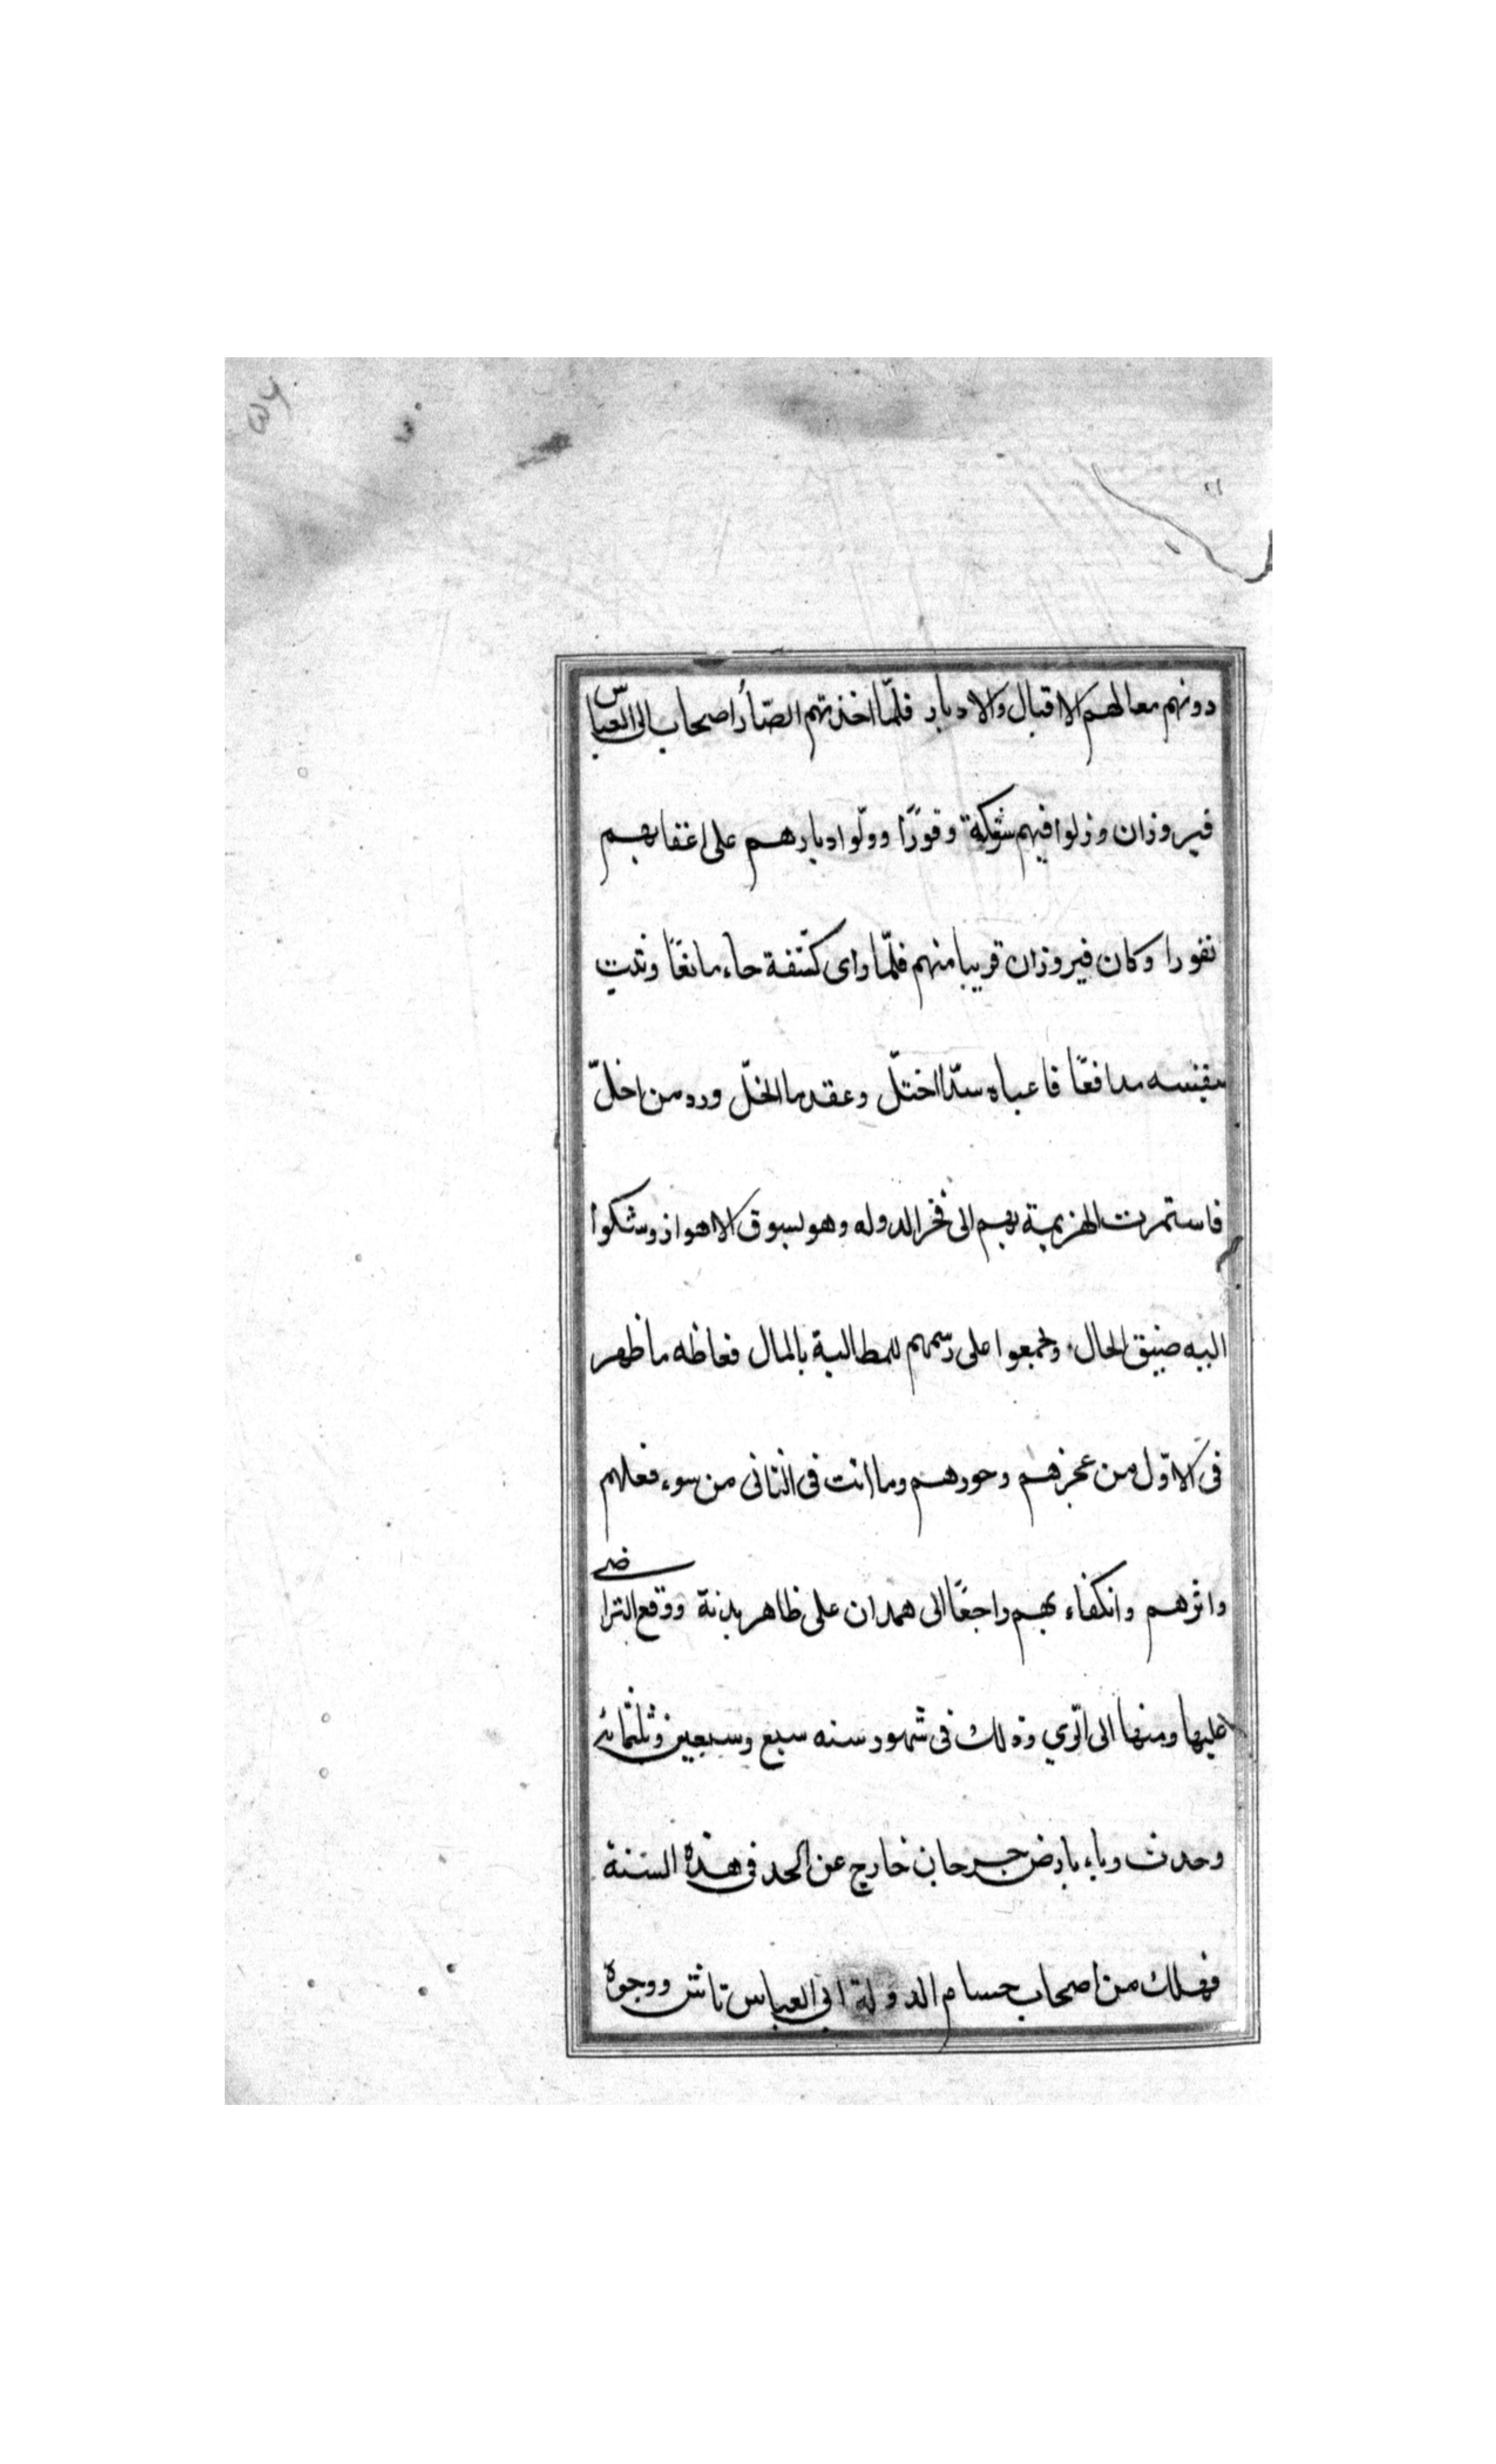 دونهم معالهم الاقبال والادبار فلمّا اخذتهم الصّار اصحاب الى العباس
فيروزان وزلوا فيهم شوكة وقورًا وولّوا ادبارهم على اعقابهم
نفورا وكان فيروزان قريبا منهم فلمّا راى كشفة جاء مانعًا وثبت
بنفسه مدافعًا فاعياه سدّ ما اختلّ وعقد ما انحلّ ورد من اخلّ
فاستمرت الهزيمة بهم الى فخر الدوله وهو بسوق الاهواز وشكوا
اليه ضيق الحال وتجمعوا على رسمهم للمطالبة بالمال فغاظه ما ظهر
فى الاوّل من عجزهم وخورهم وما انت فى الثانى من سوء فعلهم
واثرهم وانكفاء بهم راجعًا الى همدان على ظاهر بدنة ووقع التراضى
عليها ومنها الى الرّي وذلك فى شهور سنه سبع وسبعين وثلثمائه
وحدث وباء بارض جرجان خارج عن الحد فى هذه السنة
فهلك من اصحاب حسام الدولة ابى العباس تاش ووجوه